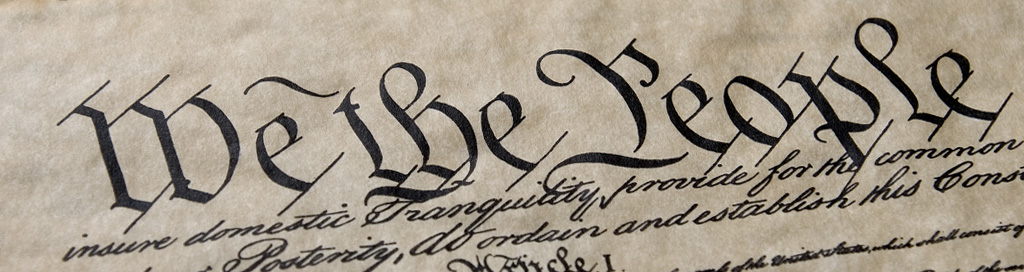 We the People
insure domestic Tranquility, provide for the common
Posterity, do ordain and establish this Const
Article I.
of the United States, which shall consist of